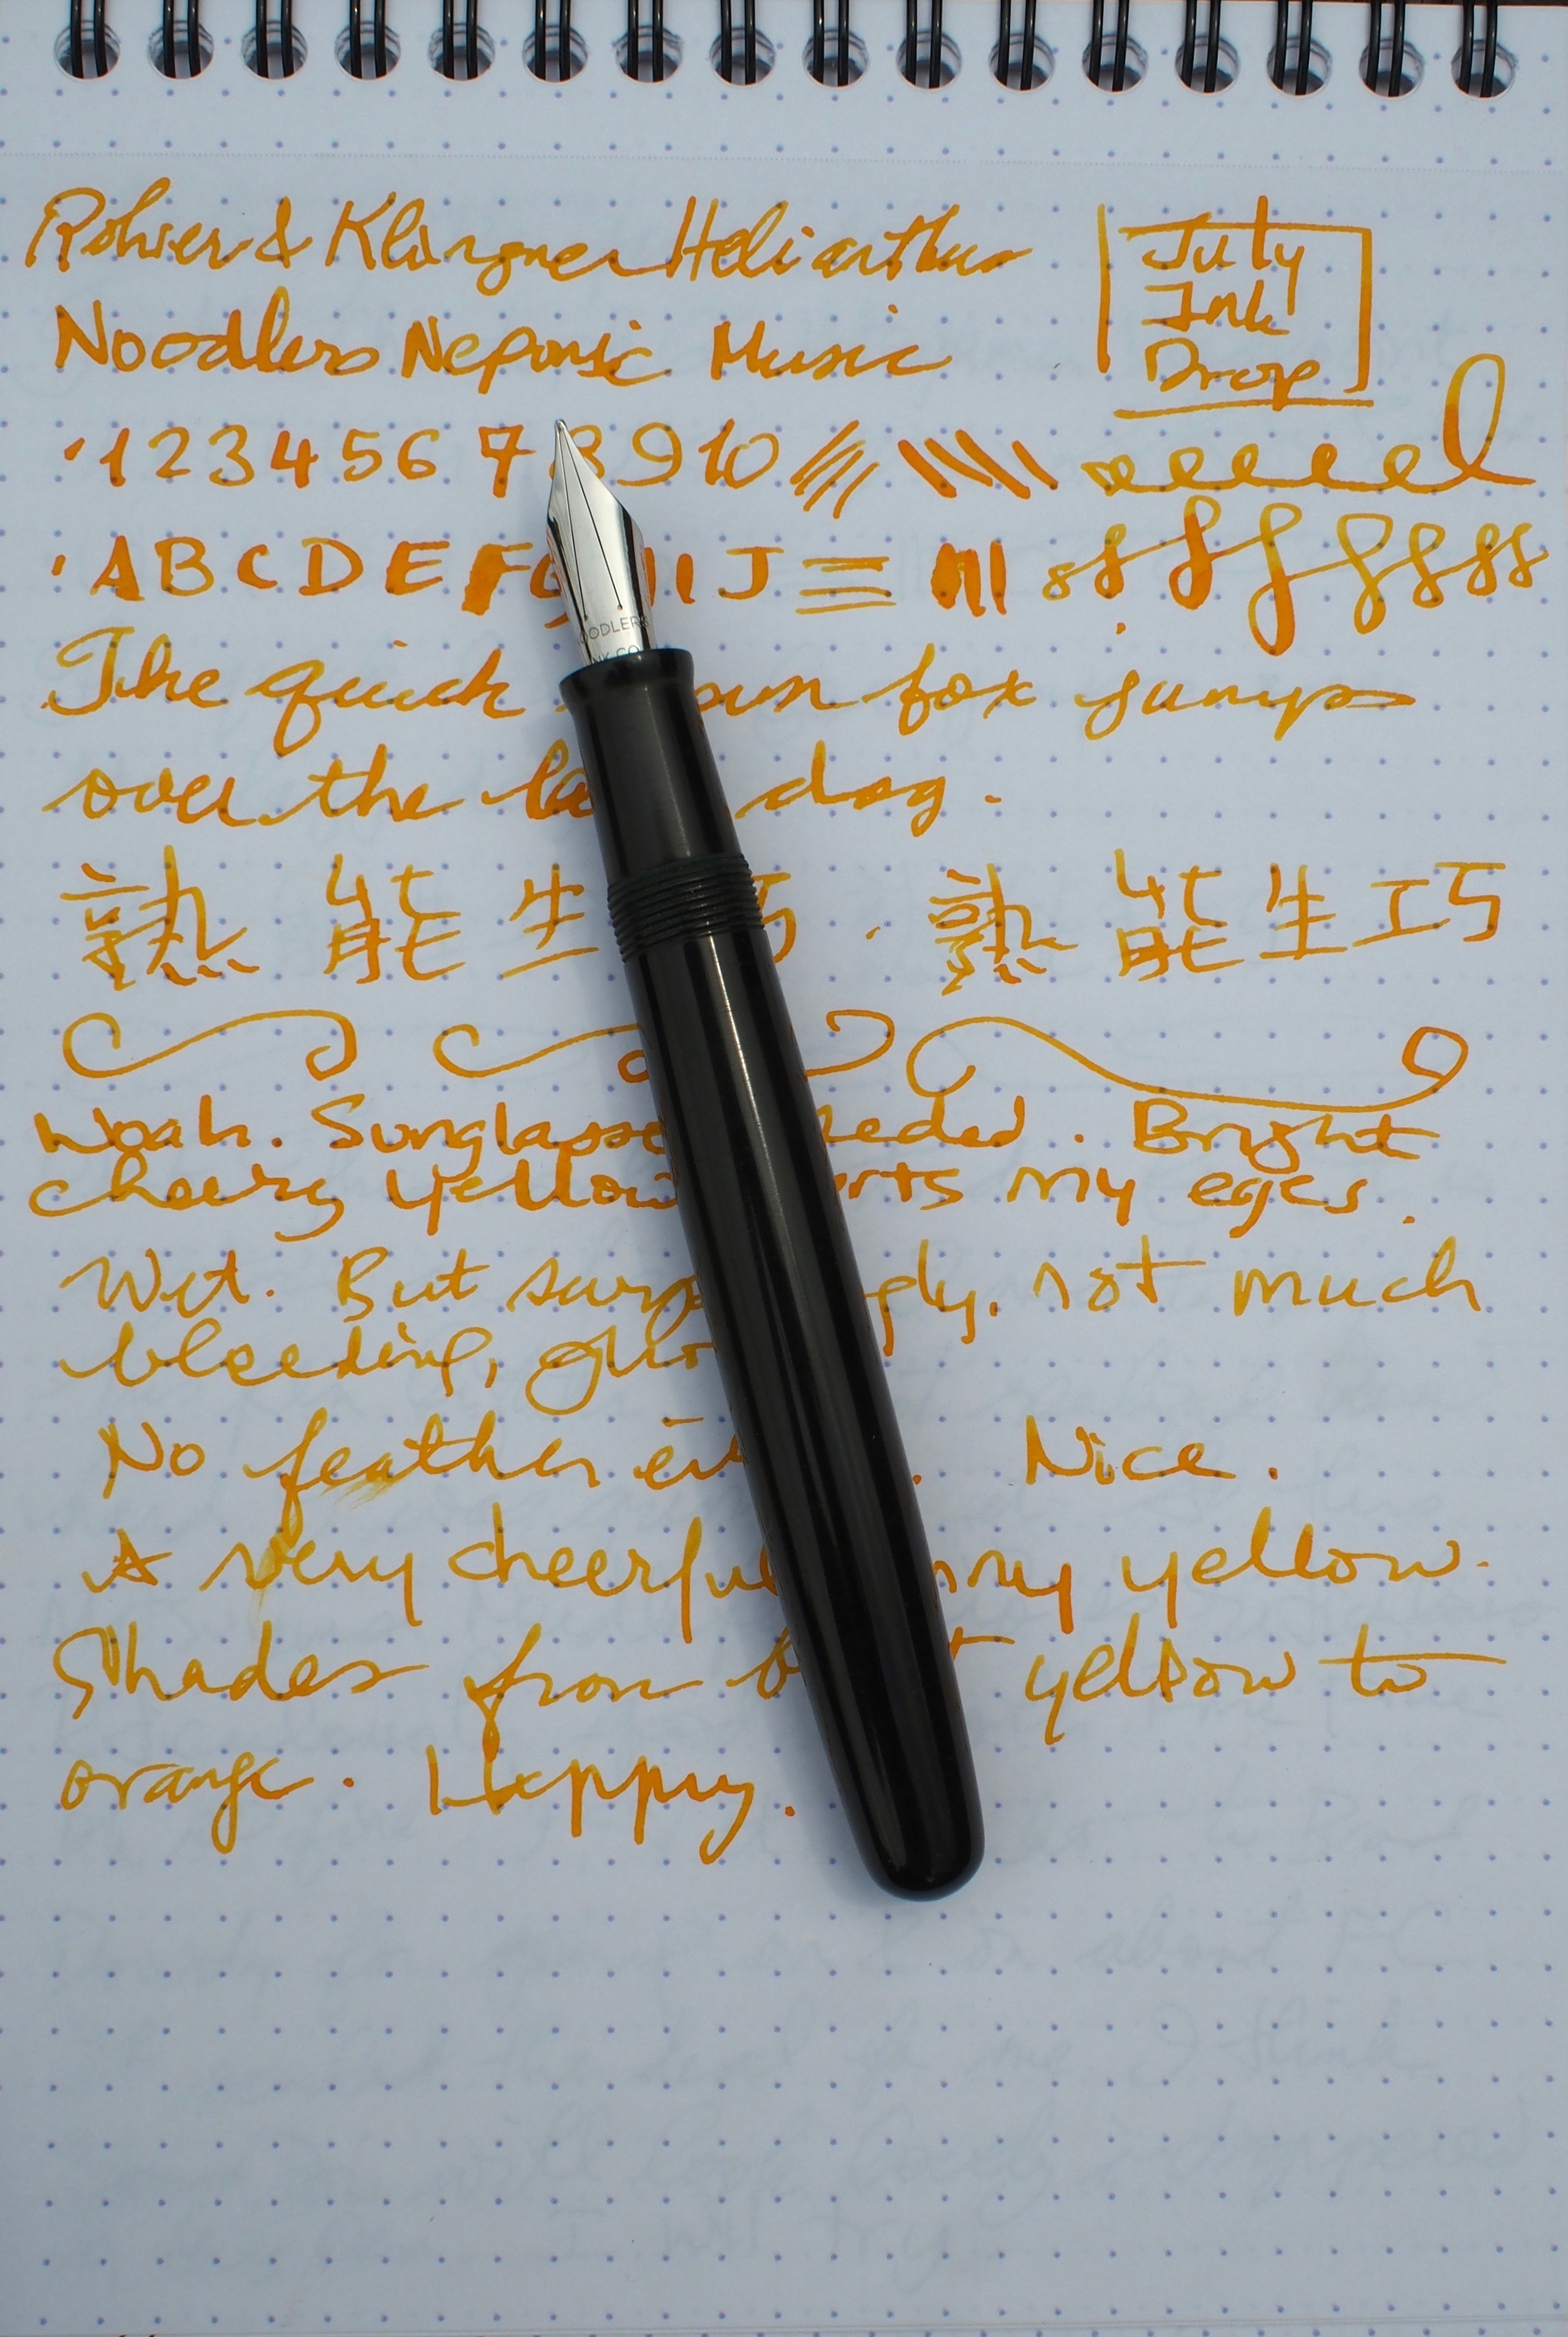 Rohrer & Klingner Helianthus
Noodlers Neponsic Music
July
Ink
Drop
1 2 3 4 5 6 7 8 9 10
A B C D E F G I J
NOODLER'S
INK CO
The quick fox jumps
over the dog.
熟能生巧．熟能生巧
Woah. Sunglasses needed. Bright
cheery yellow my eyes.
Wet. But not much
bleeding,
No feather either. Nice.
A very cheerful yellow.
Shades from yellow to
orange. Happy.